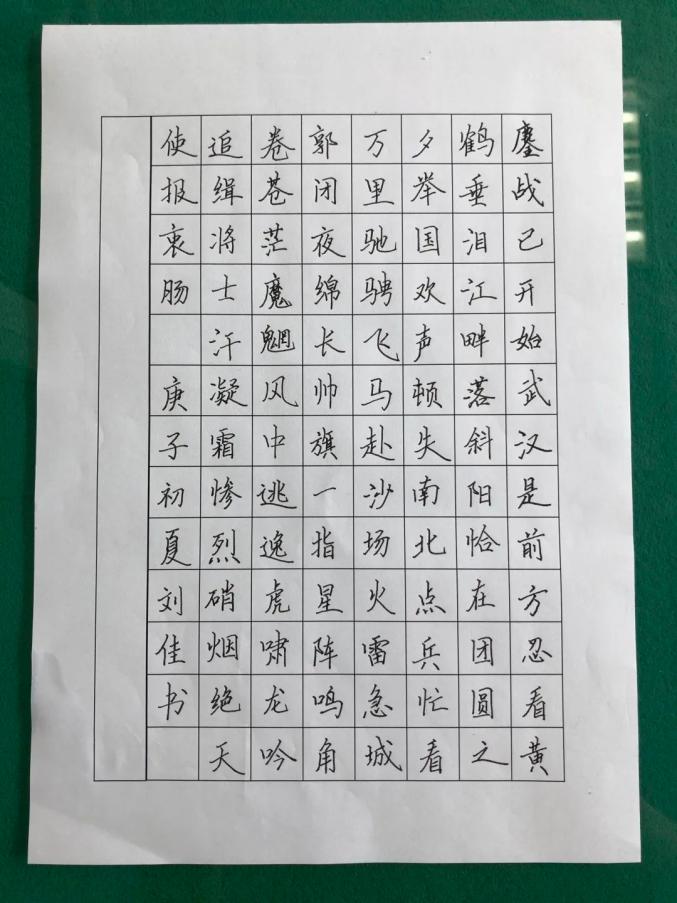 鏖战已开始武汉是前方忍看黄
鹤垂泪江畔落斜阳恰在团圆之
夕举国欢声顿失南北点兵忙看
万里驰骋飞马赴沙场火雷急城
郭闭夜绵长帅旗一指星阵鸣角
卷苍茫魔魍风中逃逸虎啸龙吟
追缉将士汗凝霜惨烈硝烟绝天
使报衷肠
庚子初夏刘佳书